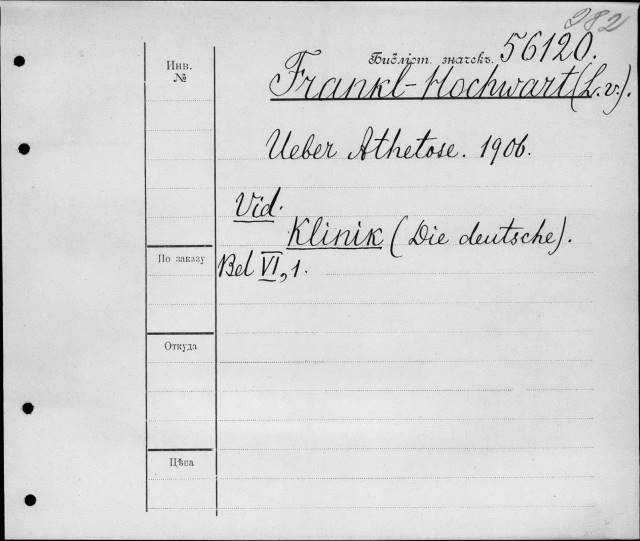 282
Библіот. значекъ. 56120.
Инв.
№
Frankl-Hochwart (L. v.).
Ueber Athetose. 1906.
Vid.
Klinik (Die deutsche).
По заказу
Bd VI, 1.
Откуда
Цѣна